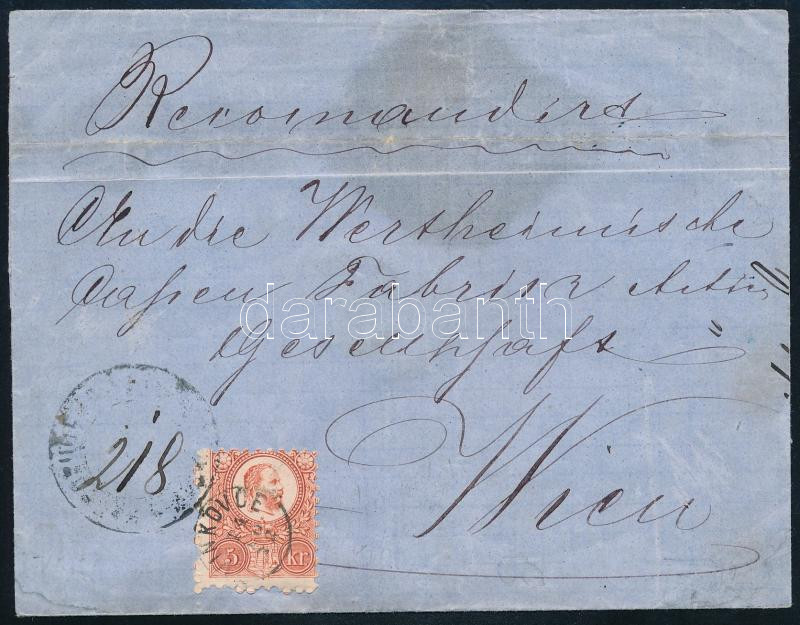 Recomandirt
An die Wertheimische
Cassen Fabriks Actien
Gesellschaft
darabanth
Wien
218
NKOVCE
5 Kr